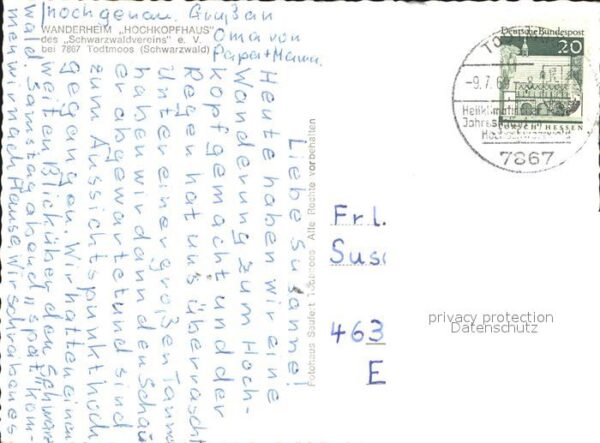 hochgenau. Gruß an
Oma von
Papa + Mama.
WANDERHEIM „HOCHKOPFHAUS"
des „Schwarzwaldvereins" e. V.
bei 7867 Todtmoos (Schwarzwald)
Liebe Susanne!
Heute haben wir eine
Wanderung zum Hoch-
kopf gemacht und der
Regen hat uns überrascht
Unter einer großen Tanne
haben wir dann den Schau
er abgewartet und sind
zum Aussichtspunkt hoch
gegangen. Wir hatten einen
weiten Blick über den Schwarz
wald. Samstag abend „spät" kom-
men wir nach Hause. Wir schreiben es
Fotohaus Saufert Todtmoos Alle Rechte vorbehalten
Deutsche Bundespost
20
LORSCH/HESSEN
-9.7.69
Heilklimatischer
7867
Frl.
Sus
463
E
privacy protection
Datenschutz